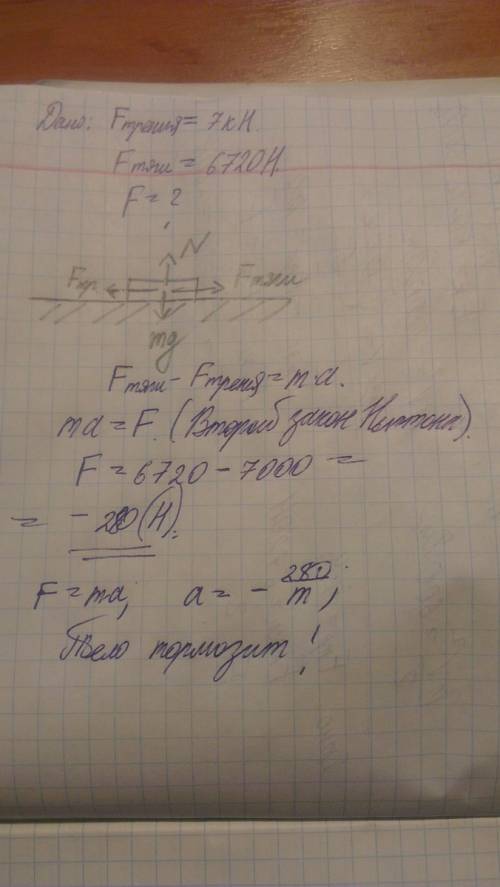 Дано: Fтрения = 7кН
Fтяги = 6720Н.
F = ?
N
Fтр. Fтяги
mg
Fтяги - Fтрения = m·a.
ma = F. (Второй закон Ньютона).
F = 6720 - 7000 =
= - 280 (Н).
F = ma; a = - 280/m ;
Тело тормозит!